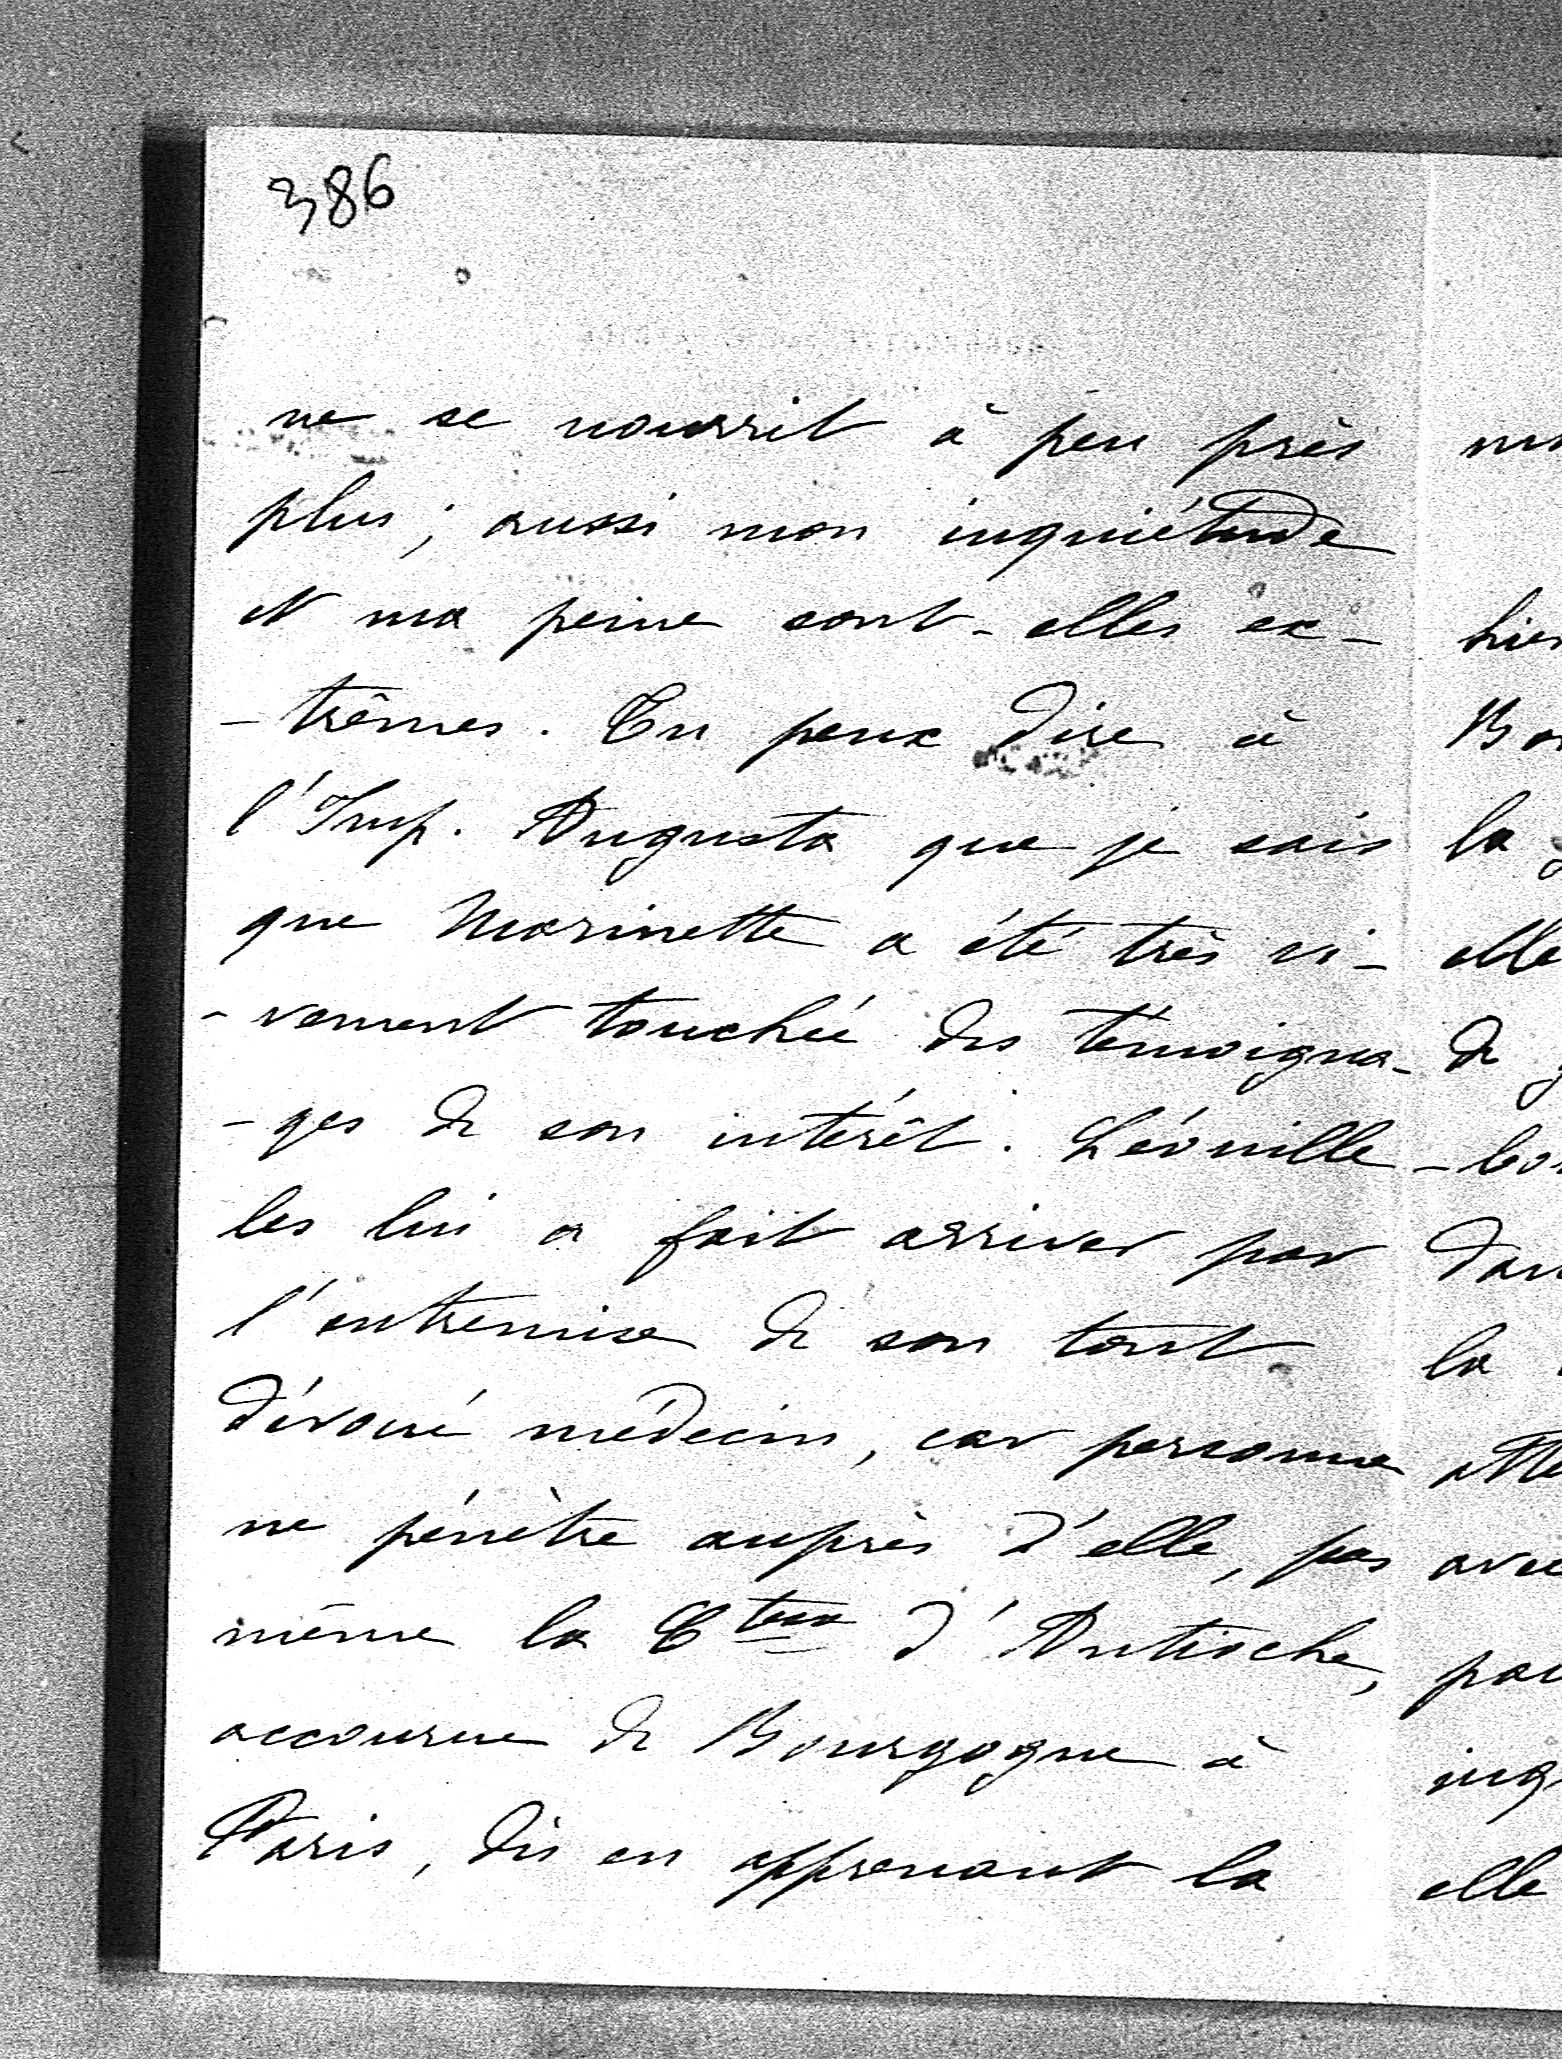 386
ne se nourrit à peu près
plus; aussi mon inquiétude
et ma peine sont-elles ex-
-trêmes. Tu peux dire à
l'Imp. Augusta que je sais
que Marinette a été très vi-
-vement touchée des témoigna-
-ges de son intérêt. Léouville
les lui a fait arriver par
l'entremise de son tout
dévoué médecin, car personne
ne pénètre auprès d'elle, pas
même la Ctesse d'Antioche,
accourue de Bourgogne à
Paris, dès en apprenant la
hier
la
elle
de
la
avec
elle